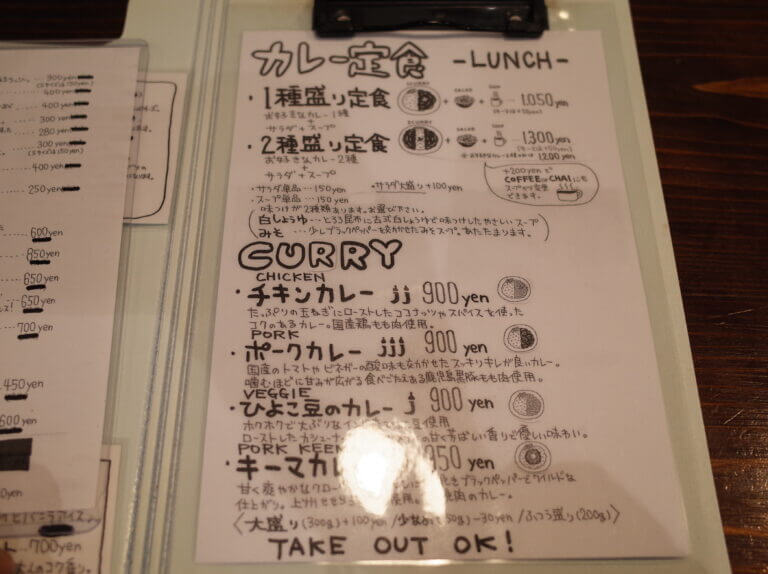 カレー定食 -LUNCH-
・1種盛り定食 + SALAD + SOUP … 1,050yen
お好きなカレー1種
+
サラダ+スープ
・2種盛り定食 2CURRY + SALAD + … 1,300yen
お好きなカレー2種 1200yen
+
サラダ+スープ
+200yenで
COFFEE or CHAIにも
スープから変更
できます。
・サラダ単品…150yen ・サラダ大盛り+100yen
・スープ単品…150yen
味つけが2種類あります。お選び下さい。
白しょうゆ…とろろ昆布に古式白しょうゆで味つけしたやさしいスープ
みそ …少しブラックペッパーを効かせたみそスープ。あたたまります。
CURRY
CHICKEN
・チキンカレー 900yen
たっぷりの玉ねぎにローストしたココナッツやスパイスを使った
コクのあるカレー。国産鶏もも肉使用。
PORK
・ポークカレー 900yen
国産のトマトやビネガーの酸味も効かせたスッキリキレが良いカレー。
噛むほどに甘みが広がる食べごたえある鹿児島黒豚もも肉使用。
VEGGIE
・ひよこ豆のカレー 900yen
ホクホクで大ぶりな 豆使用
ローストしたカシューナ の甘く芳ばしい香りで優しい味わい。
PORK KEEM
・キーマカレ 950yen
甘く爽やかなクロー ブラックペッパーでワイルドな
仕上がり。 使用。 肉のカレー。
〈大盛り(300g)+100yen/少なめ(150g)-30yen/ふつう盛り(200g)〉
TAKE OUT OK!
900yen
400yen
400yen
300yen
280yen
300yen
(Sサイズは150yen)
400yen
250yen
600yen
850yen
650yen
650yen
700yen
450yen
600yen
700yen